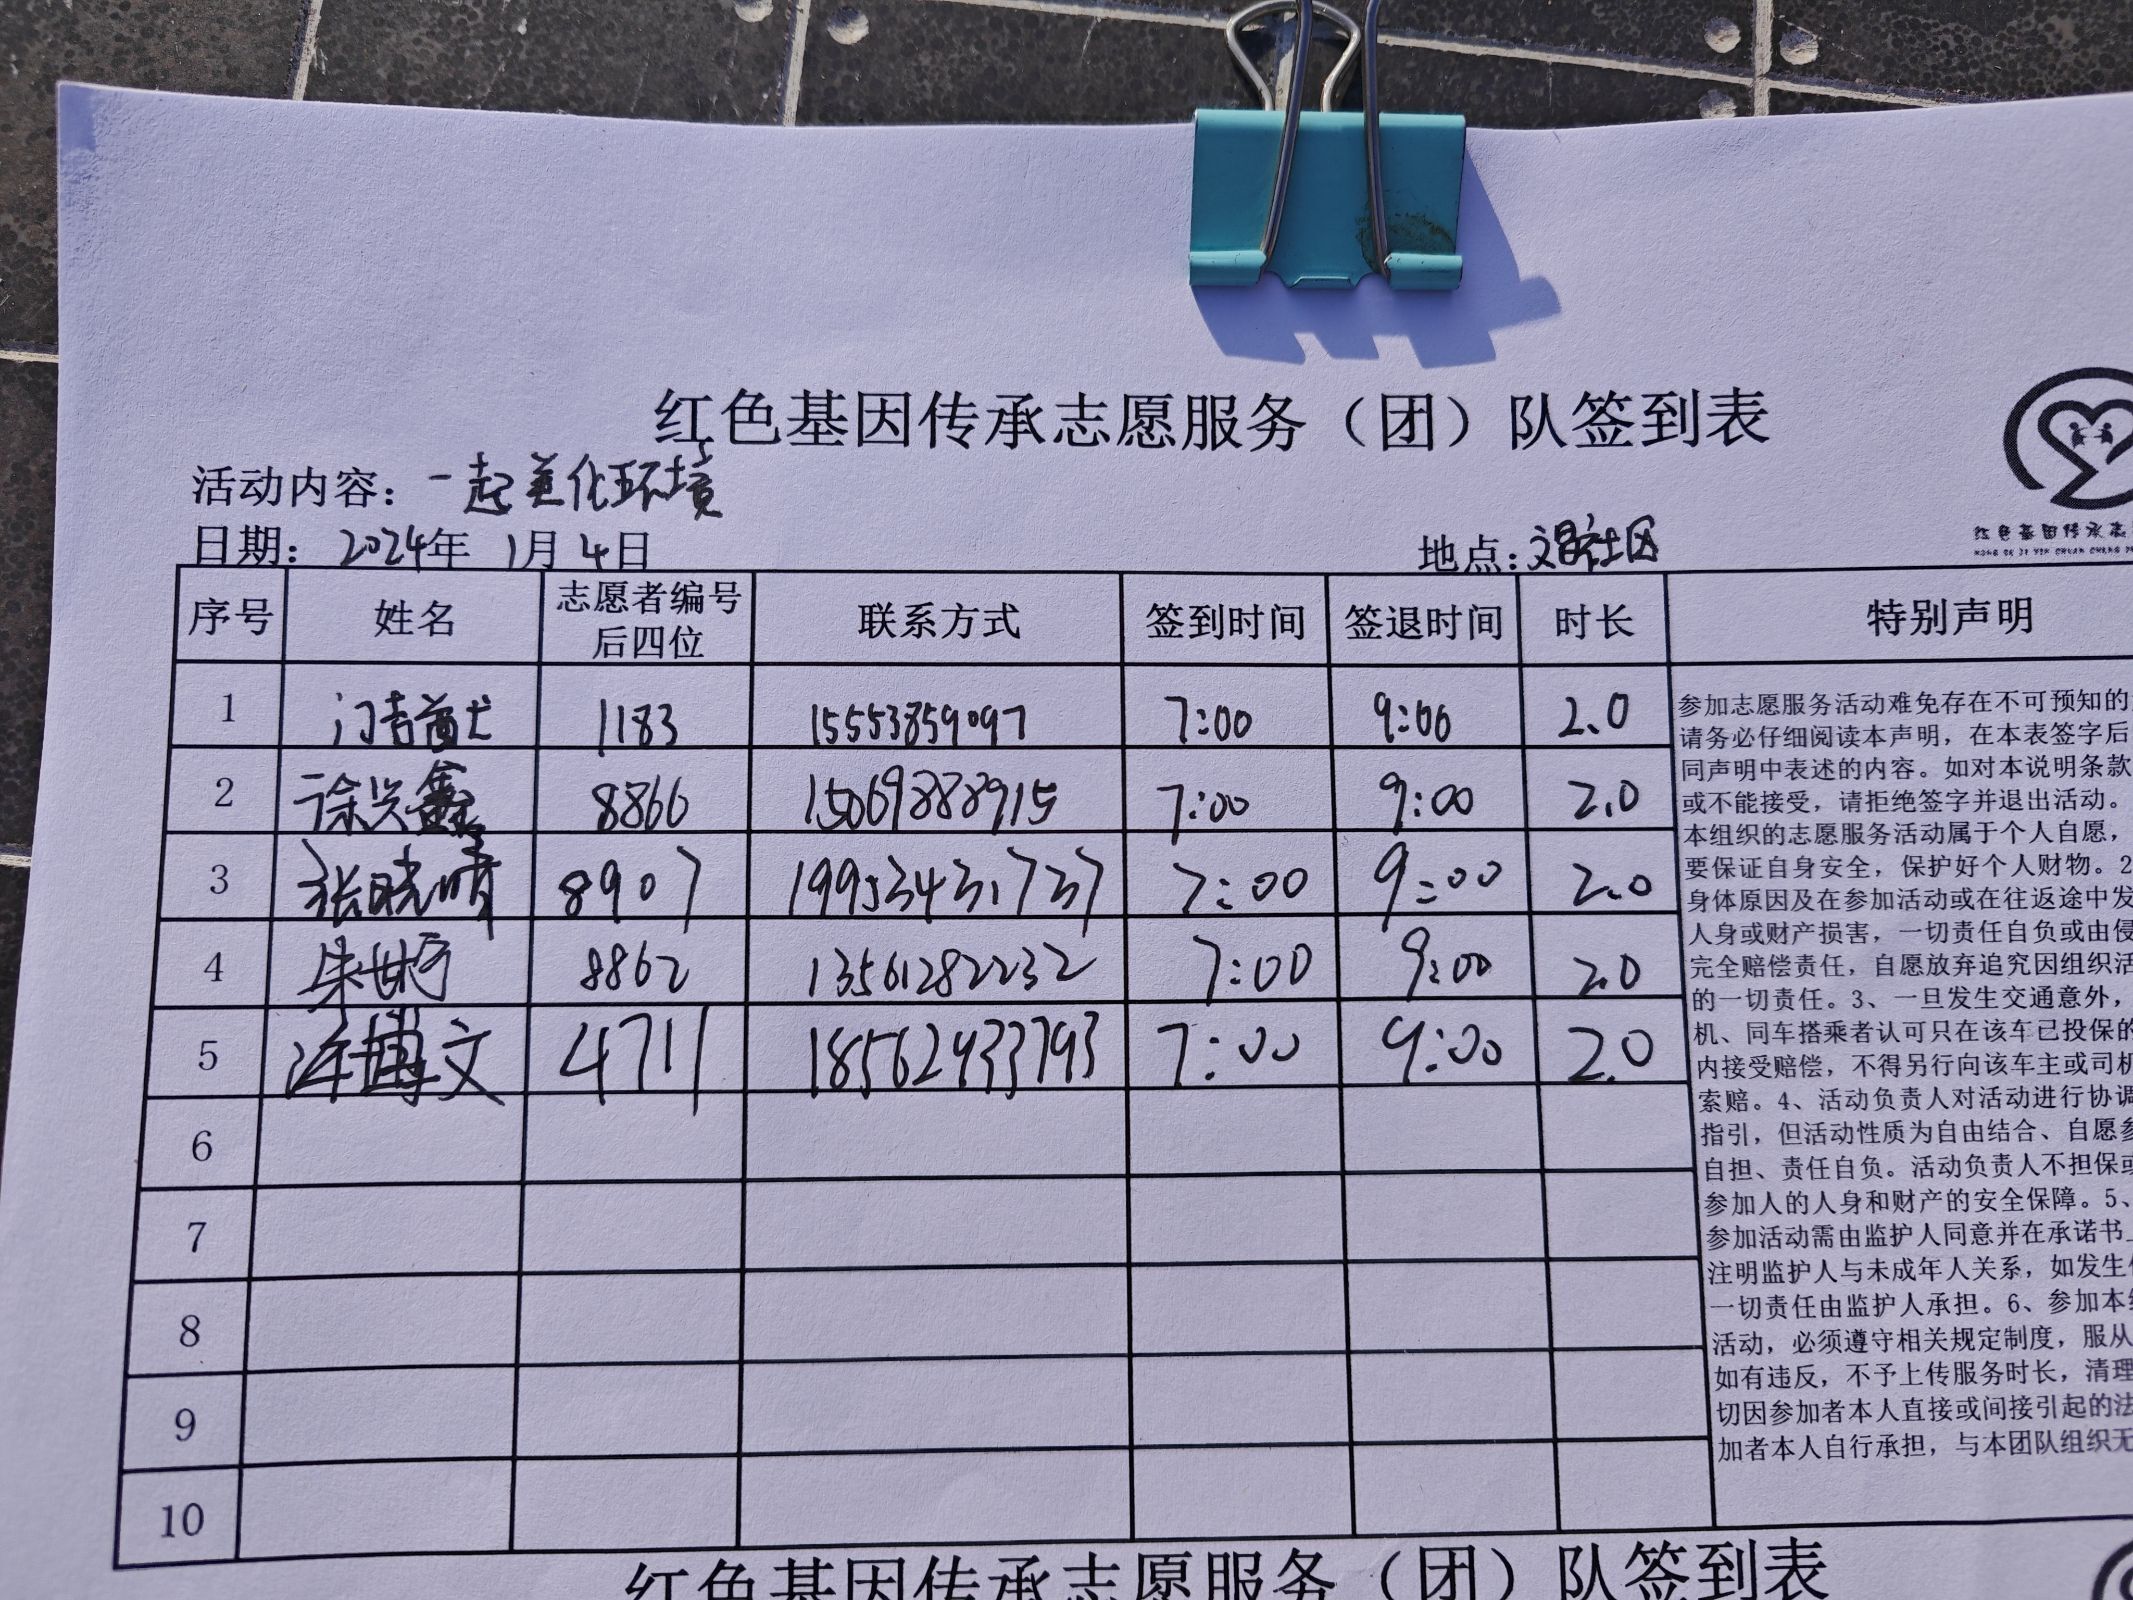 红色基因传承志愿服务（团）队签到表
活动内容：一起美化环境
日期：2024年 1月4日 地点：文昌社区
红色基因传承志
序号 姓名 志愿者编号后四位 联系方式 签到时间 签退时间 时长 特别声明
1 1183 15553859097 7:00 9:00 2.0
2 徐兴鑫 8866 15069888915 7:00 9:00 2.0
3 张晓晴 8907 19953431737 7:00 9:00 2.0
4 朱世 8862 13561282232 7:00 9:00 2.0
5 博文 4711 18562933793 7:00 9:00 2.0
6
7
8
9
10
参加志愿服务活动难免存在不可预知的
请务必仔细阅读本声明，在本表签字后
同声明中表述的内容。如对本说明条款
或不能接受，请拒绝签字并退出活动。
本组织的志愿服务活动属于个人自愿，
要保证自身安全，保护好个人财物。2
身体原因及在参加活动或在往返途中发
人身或财产损害，一切责任自负或由侵
完全赔偿责任，自愿放弃追究因组织活
的一切责任。3、一旦发生交通意外，
机、同车搭乘者认可只在该车已投保的
内接受赔偿，不得另行向该车主或司机
索赔。4、活动负责人对活动进行协调
指引，但活动性质为自由结合、自愿参
自担、责任自负。活动负责人不担保或
参加人的人身和财产的安全保障。5、
参加活动需由监护人同意并在承诺书上
注明监护人与未成年人关系，如发生
一切责任由监护人承担。6、参加本组
活动，必须遵守相关规定制度，服从
如有违反，不予上传服务时长，清理
切因参加者本人直接或间接引起的法
加者本人自行承担，与本团队组织无
红色基因传承志愿服务（团）队签到表